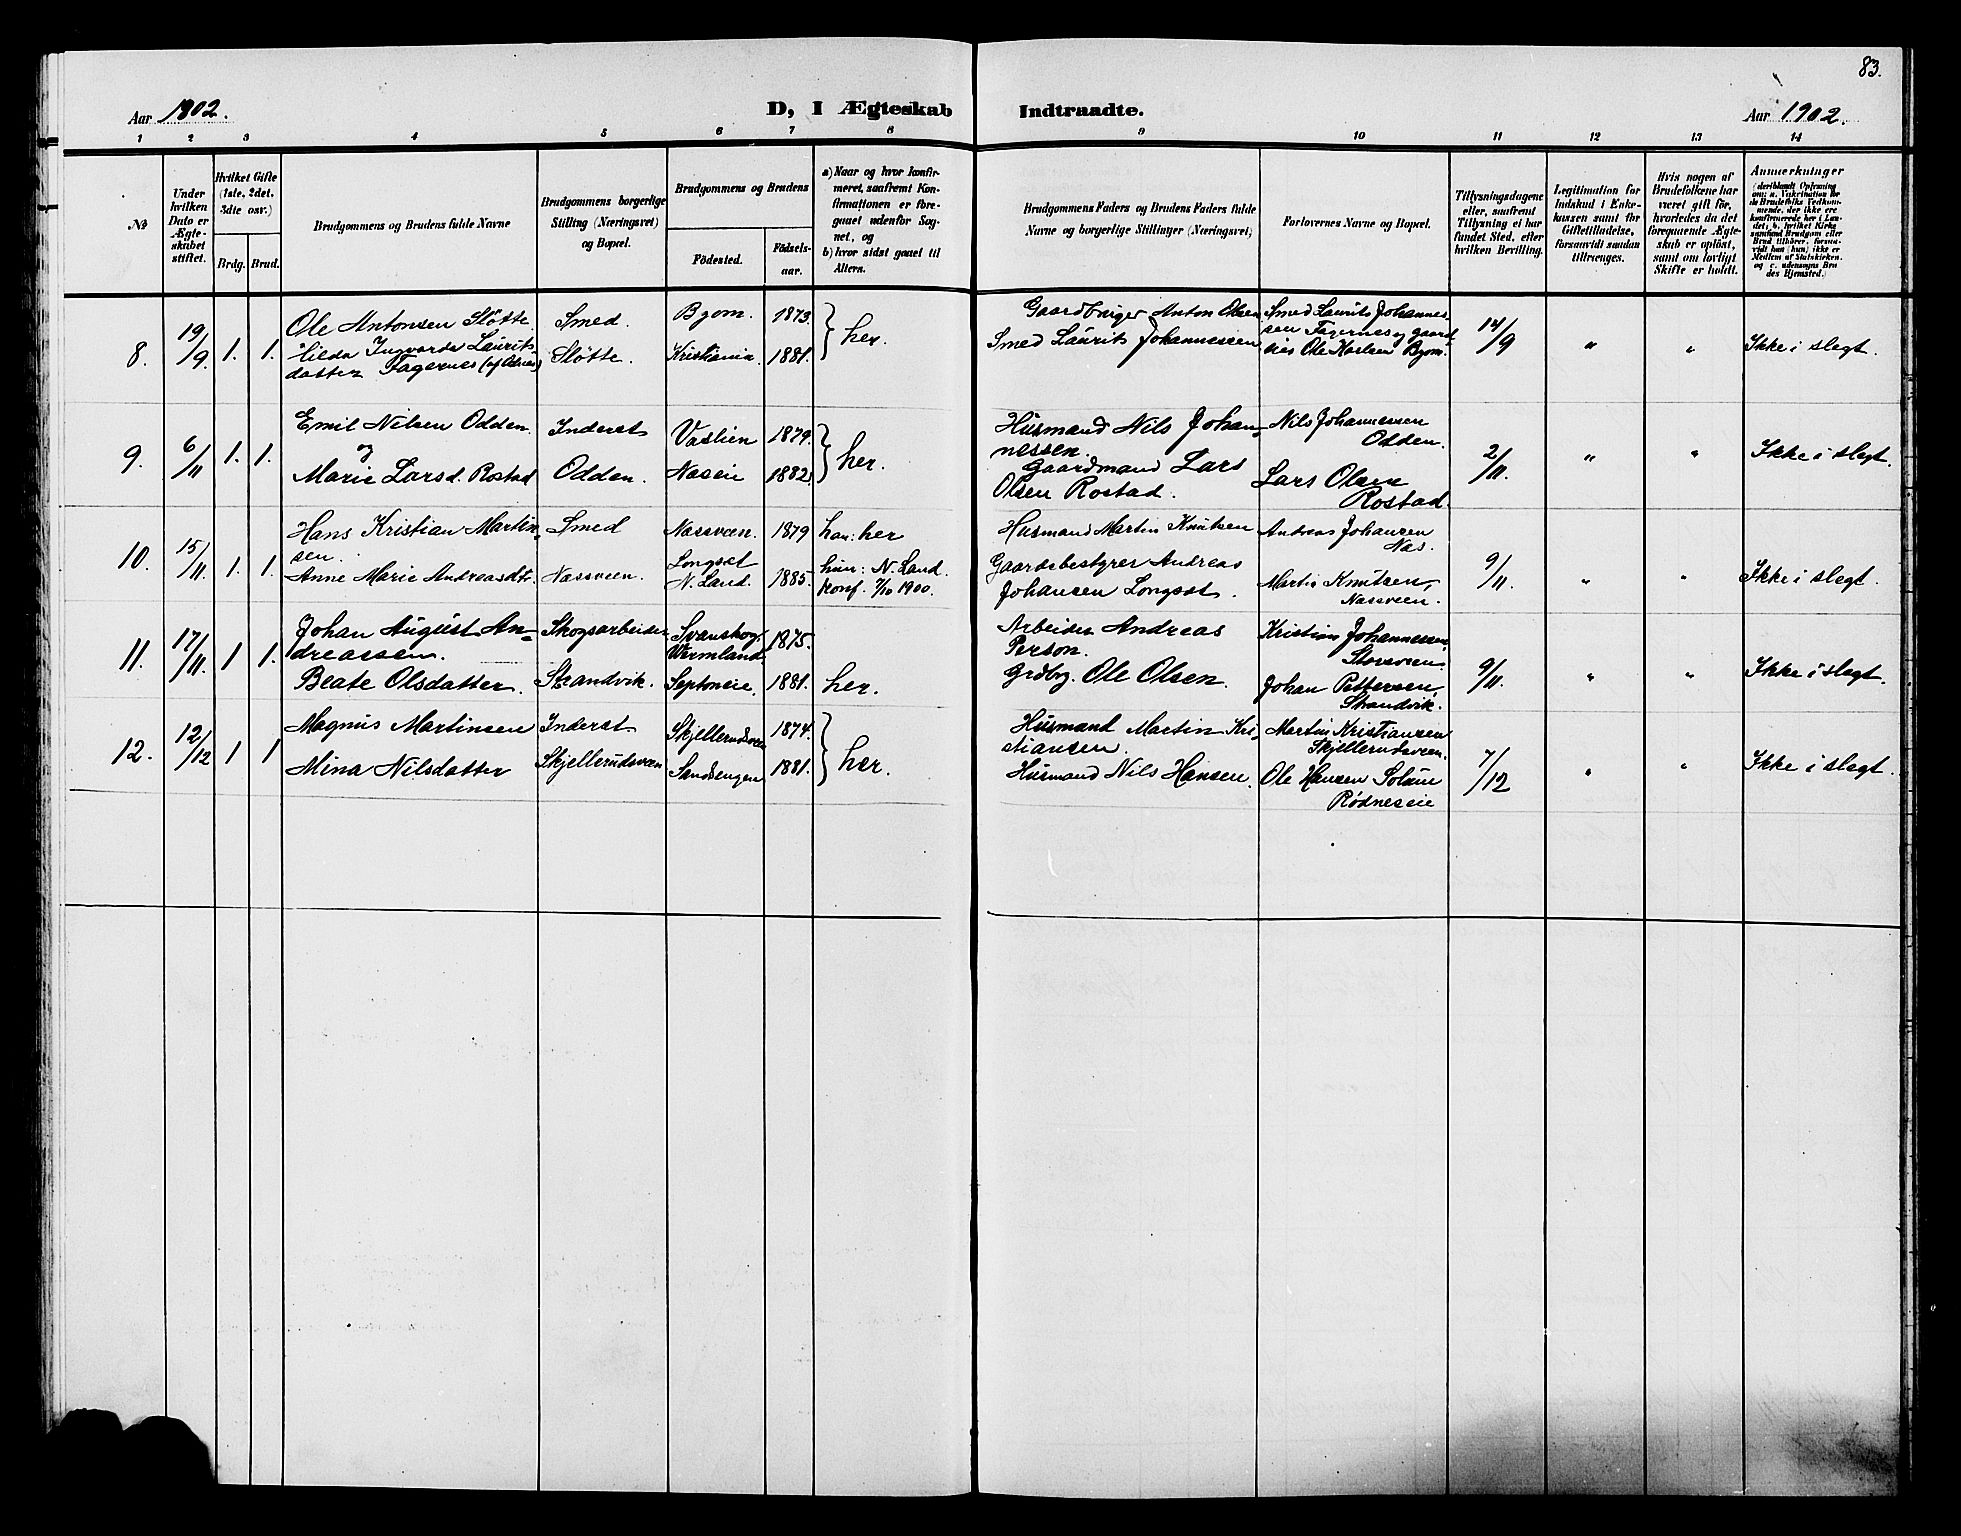 83.
Aar 1902.
D, I Ægteskab Indtraadte.
Aar 1902.
1 2 3 4 5 6 7 8 9 10 11 12 13 14
№
Under
hvilken
Dato er
Ægte-
skabet
stiftet.
Hvilket Gifte
(1ste, 2det,
3die osv.)
Brdg. Brud.
Brudgommens og Brudens fulde Navne
Brudgommens borgerlige
Stilling (Næringsvei)
og Bopæl.
Brudgommens og Brudens
Födested.
Födsels-
aar.
a) Naar og hvor konfir-
meret, saafremt Kon-
firmationen er fore-
gaaet udenfor Sog-
net, og
b) hvor sidst gaaet til
Alters.
Brudgommens Faders og Brudens Faders fulde
Navne og borgerlige Stillinger (Næringsvei)
Forlovernes Navne og Bopæl.
Tillysningsdagene
eller, saafremt
Tillysning ei har
fundet Sted, efter
hvilken Bevilling.
Legitimation for
Indskud i Enke-
kassen samt for
Giftetilladelse,
forsaavidt saadan
tiltrænges.
Hvis nogen af
Brudefolkene har
været gift för,
hvorledes da det
foregaaende Ægte-
skab er oplöst,
samt om lovligt
Skifte er holdt.
Anmerkninger
(deriblandt Oplysning
om: a. Vakcination for
de Brudefolks Vedkom-
mende, der ikke ere
konfirmerede her i Lan-
det; b. hvilket Kirke
samfund Brudgom eller
Brud tilhörer, forsaa-
vidt han (hun) ikke er
Medlem af Statskirken.
og c. udensogns Bru
des Hjemsted.)
8. 19/9. 1. 1.
Ole Antonsen Slötte
Hilda Ingvarda Laurits-
datter Fagernes (af Odnes)
Smed.
Slötte.
Byom. 1873.
Kristiania. 1881.
her.
Gaardbruger Anton Olsen
Smed Laurits Johannessen
Smed Laurits Johannes-
sen Fagernes og gaard
Ole Karlsen Byom.
14/9 " " Ikke i slegt.
9. 6/11 1. 1.
Emil Nilsen Odden.
og
Marie Larsd. Rostad
Inderst
Odden.
Vaslien 1879.
Næseie 1882.
her.
Husmand Nils Johan-
nessen.
Gaardmand Lars
Olsen Rostad.
Nils Johannessen
Odden.
Lars Olsen
Rostad.
2/11. " " Ikke i slegt.
10. 15/11. 1. 1.
Hans Kristian Martin-
sen.
Anne Marie Andreasdtr.
Smed
Næssveen.
Næssveen. 1879
Longset
N. Land. 1885.
han: her
hun: N. Land.
konf. 7/10 1900.
Husmand Martin Knutsen
Gaardsbestyrer Andreas
Johansen Longset.
Andreas Johansen
Næs.
Martin Knutsen,
Næssveen.
9/11. " " Ikke i slegt.
11. 17/11. 1 1.
Johan August An-
dreassen.
Beate Olsdatter.
Skogsarbeider
Strandvik.
Svanskog,
Wermland 1875.
Septoneie. 1881.
her.
Arbeider Andreas
Person.
Grdbg. Ole Olsen.
Kristian Johannessen
Storsveen
Johan Pettersen,
Strandvik.
9/11. " " Ikke i slegt.
12. 12/12 1 1
Magnus Martinsen
Mina Nilsdatter
Inderst
Skjellerudsveen
Skjellerudsveen 1874.
Sandsengen 1881.
her.
Husmand Martin Kri-
stiansen.
Husmand Nils Hansen.
Martin Kristiansen
Skjellerudsveen.
Ole Hansen Solum
Rödneseie
7/12 " " Ikke i slegt.